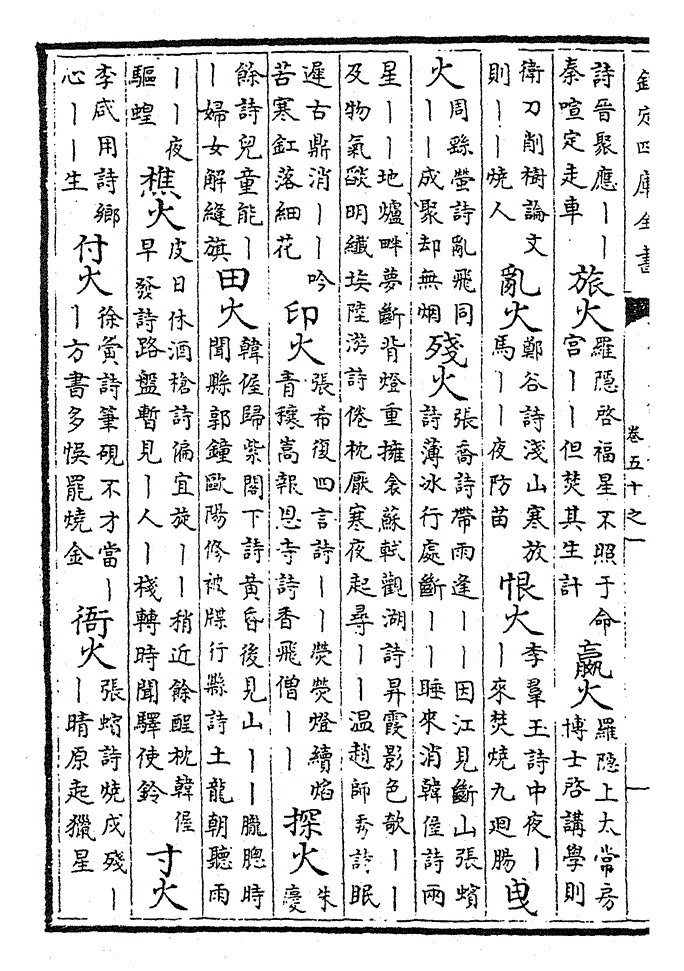 欽定四庫全書
卷五十之一
詩晉聚應丨丨
秦喧定走車
旅火
羅隱啓福星不照于命
宮丨丨但焚其生計
嬴火
羅隱上太常房
博士啓講學則
衛刀削樹論文
則丨丨燒人
亂火
鄭谷詩淺山寒放
馬丨丨夜防苗
恨火
李羣玉詩中夜丨
丨來焚燒九廻腸
曳
火
周繇螢詩亂飛同
丨丨成聚却無烟
殘火
張喬詩帶雨逢丨丨因江見斷山張蠙
詩薄冰行處斷丨丨睡來消韓偓詩兩
星丨丨地爐畔夢斷背燈重擁衾蘇軾觀湖詩昇霞影色欹丨丨
及物氣燄明纖埃陸游詩倦枕厭寒夜起尋丨丨温趙師秀詩眠
遲古鼎消丨丨吟
苦寒釭落細花
印火
張希復四言詩丨丨熒熒燈續焰
青穰嵩報恩寺詩香飛僧丨丨
探火
朱
慶
餘詩兒童能丨
丨婦女解縫旗
田火
韓偓歸紫閣下詩黃昏後見山丨丨朧朧時
聞縣郭鐘歐陽修被牒行縣詩土龍朝聽雨
丨丨夜
驅蝗
樵火
皮日休酒槍詩偏宜旋丨丨稍近餘酲枕韓偓
早發詩路盤暫見丨人丨棧轉時聞驛使鈴
寸火
李咸用詩鄉
心丨丨生
付火
徐夤詩筆硯不才當丨
丨方書多悞罷燒金
衙火
張蠙詩燒戍殘丨
丨晴原起獵星